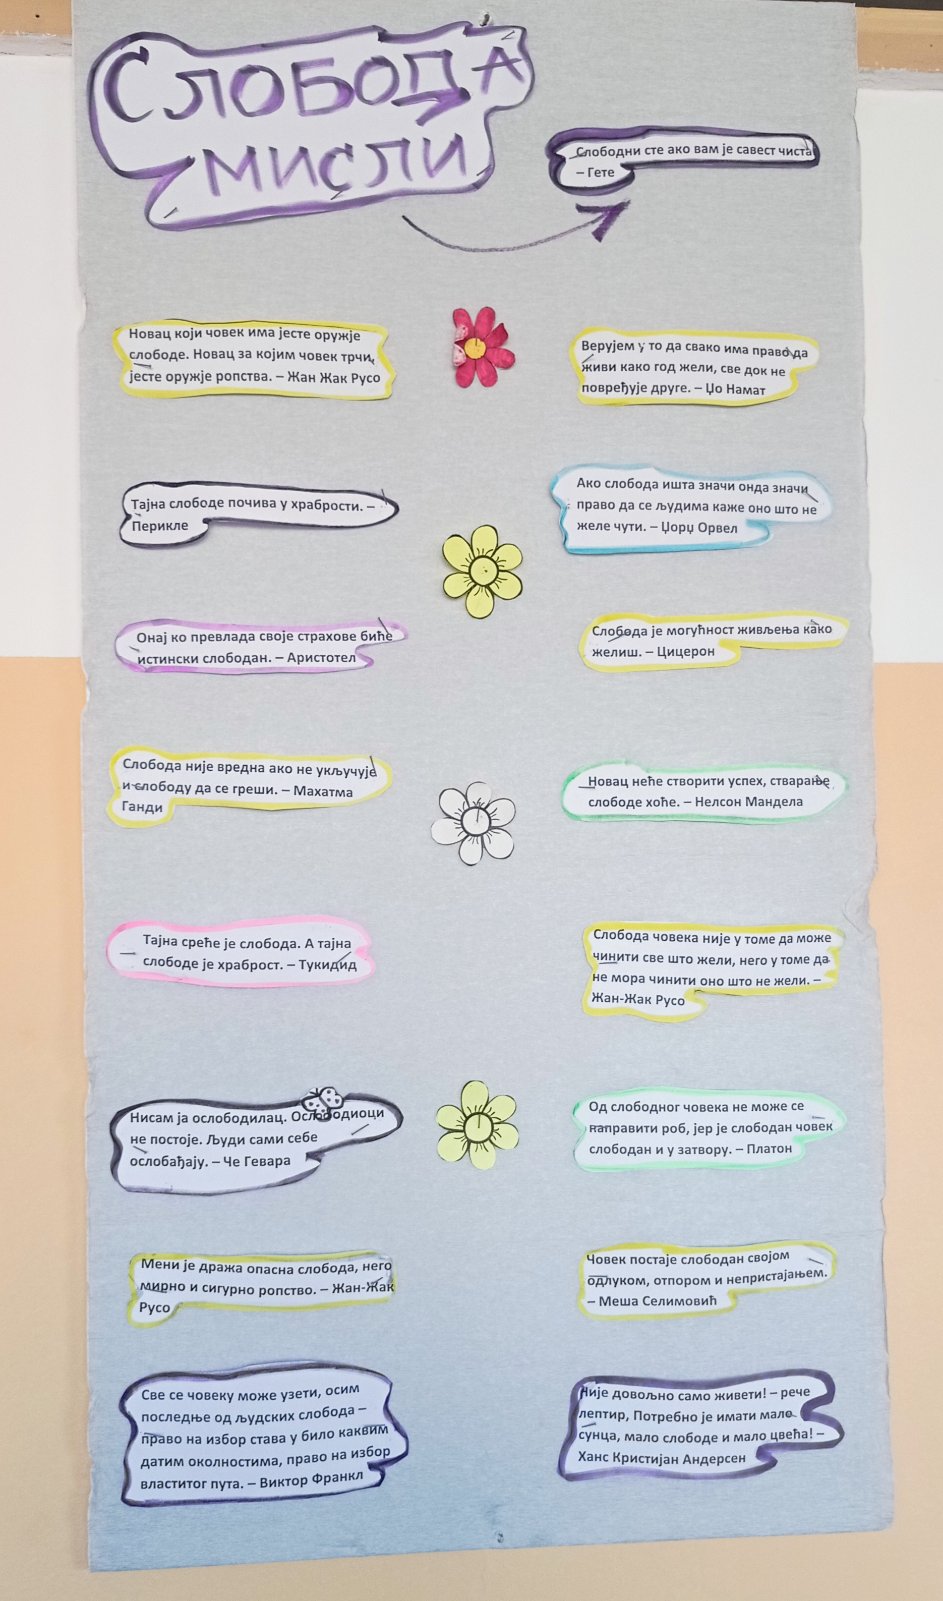 СЛОБОДА
МИСЛИ
Слободни сте ако вам је савест чиста
– Гете
Новац који човек има јесте оружје
слободе. Новац за којим човек трчи,
јесте оружје ропства. – Жан Жак Русо
Верујем у то да свако има право да
живи како год жели, све док не
повређује друге. – Џо Намат
Тајна слободе почива у храбрости. –
Перикле
Ако слобода ишта значи онда значи
право да се људима каже оно што не
желе чути. – Џорџ Орвел
Онај ко превлада своје страхове биће
истински слободан. – Аристотел
Слобода је могућност живљења како
желиш. – Цицерон
Слобода није вредна ако не укључује
и слободу да се греши. – Махатма
Ганди
Новац неће створити успех, стварање
слободе хоће. – Нелсон Мандела
Тајна среће је слобода. А тајна
слободе је храброст. – Тукидид
Слобода човека није у томе да може
чинити све што жели, него у томе да
не мора чинити оно што не жели. –
Жан-Жак Русо
Нисам ја ослободилац. Ослободиоци
не постоје. Људи сами себе
ослобађају. – Че Гевара
Од слободног човека не може се
направити роб, јер је слободан човек
слободан и у затвору. – Платон
Мени је дража опасна слобода, него
мирно и сигурно ропство. – Жан-Жак
Русо
Човек постаје слободан својом
одлуком, отпором и непристајањем.
– Меша Селимовић
Све се човеку може узети, осим
последње од људских слобода –
право на избор става у било каквим
датим околностима, право на избор
властитог пута. – Виктор Франкл
Није довољно само живети! – рече
лептир, Потребно је имати мало
сунца, мало слободе и мало цвећа! –
Ханс Кристијан Андерсен